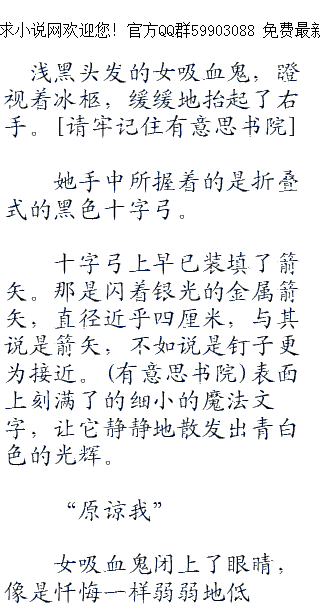 求小说网欢迎您！官方QQ群59903088 免费最新
浅黑头发的女吸血鬼，瞪
视着冰柩，缓缓地抬起了右
手。[请牢记住有意思书院]
她手中所握着的是折叠
式的黑色十字弓。
十字弓上早已装填了箭
矢。那是闪着银光的金属箭
矢，直径近乎四厘米，与其
说是箭矢，不如说是钉子更
为接近。(有意思书院)表面
上刻满了的细小的魔法文
字，让它静静地散发出青白
色的光辉。
“原谅我”
女吸血鬼闭上了眼睛，
像是忏悔一样弱弱地低